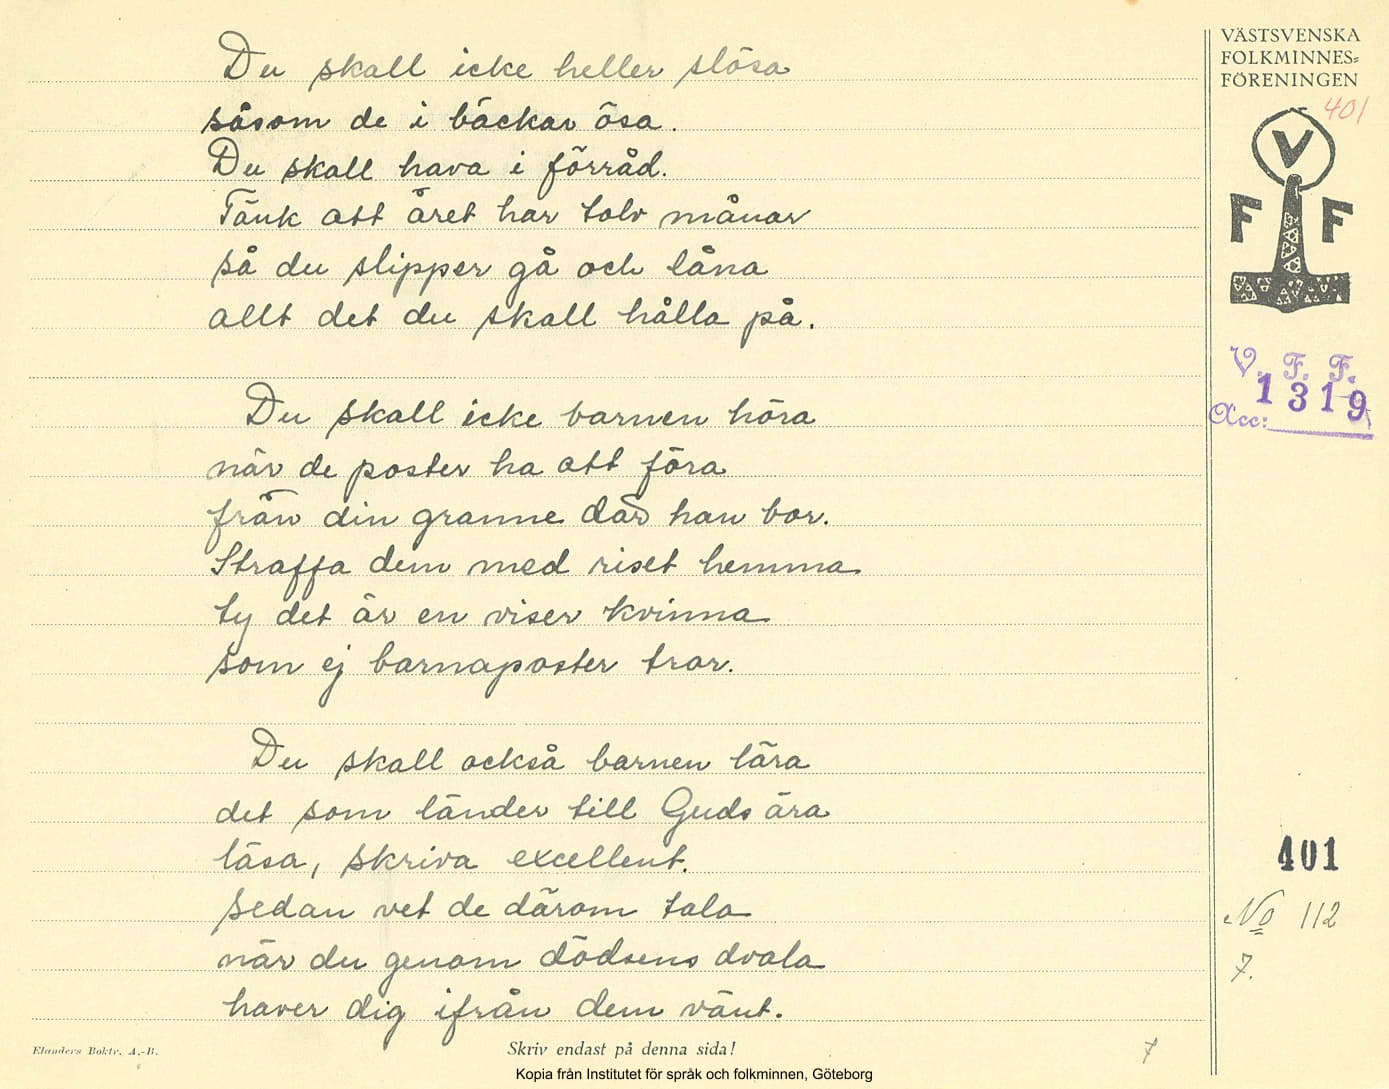 Du skall icke heller slösa
såsom de i bäckar ösa.
Du skall hava i förråd.
Tänk att året har tolv månar
så du slipper gå och låna
allt det du skall hålla på.
Du skall icke barnen höra
när de poster ha att föra
från din granne där han bor.
Straffa dem med riset hemma
ty det är en viser kvinna
som ej barnaposter tror.
Du skall också barnen lära
det som länder till Guds ära
läsa, skriva excellent.
Sedan vet de därom tala
när du genom dödsens dvala
haver dig ifrån dem vänt.
VÄSTSVENSKA
FOLKMINNES-
FÖRENINGEN
401
V
F F
V. F. F.
1319
Acc:
401
No 112
7.
Elanders Boktr. A.-B.
Skriv endast på denna sida!
7
Kopia från Institutet för språk och folkminnen, Göteborg